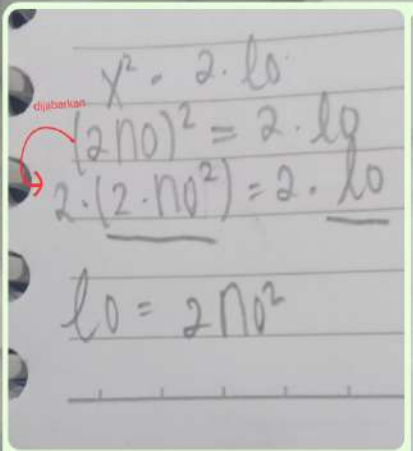 x² = 2·lo
dijabarkan
(2no)² = 2·lo
2·(2·no²) = 2·lo
lo = 2no²